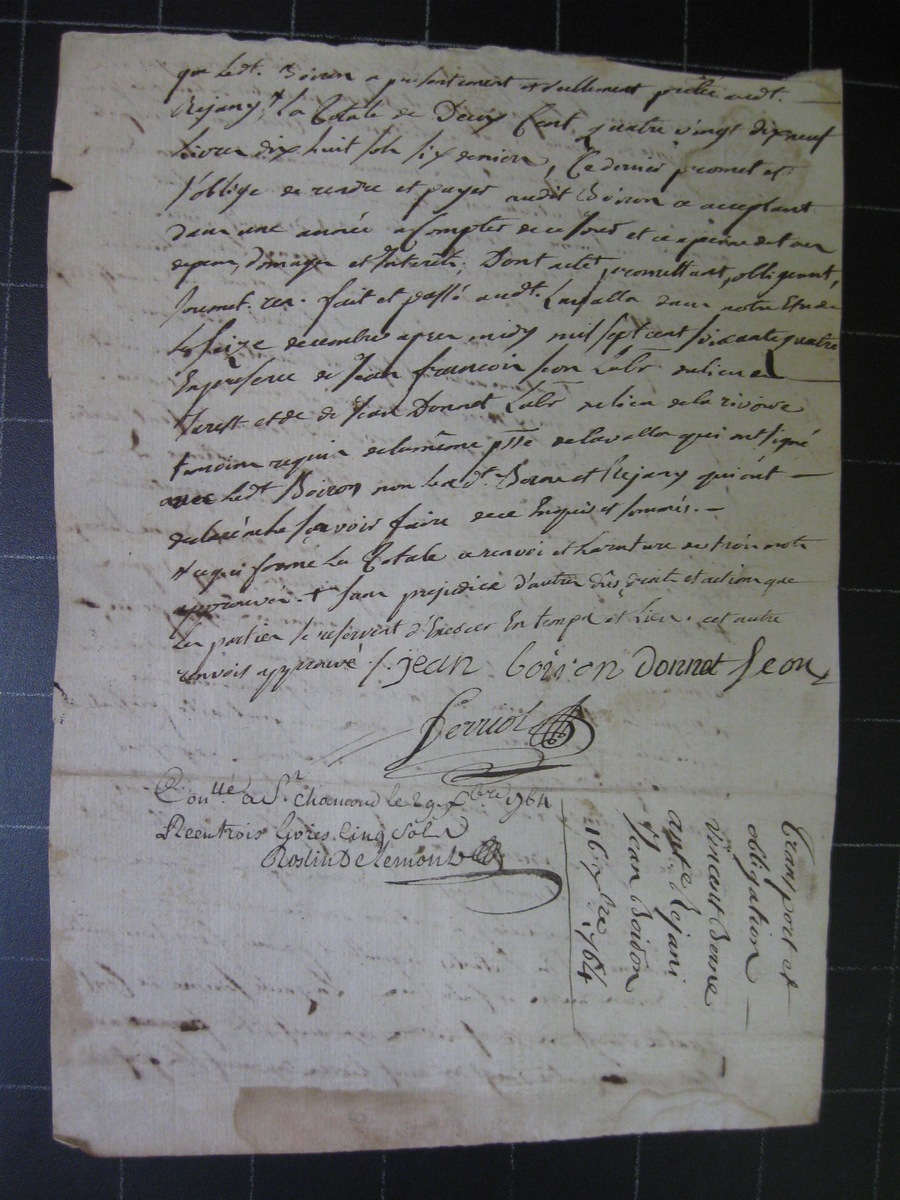 que ledt. Boiron a presentement et reellement prêtée audt.
Rejany + la Totale de Deux Cent quatre vingt dix neuf
Livres dix huit sols six deniers, Ce dernier promet et
s'oblige de rendre et payer audit Boiron ce acceptant
dans une année a Compter de ce Jour et ce a peine de tous
depens, domages et Interets; Dont acte, promettant, obligeant,
soumet. ren. fait et passé audt. Lavalla dans notre Etude
Le seize decembre apres midy mil sept cent soixante quatre
En presence de Jean francois seon Labr du lieu de
et de Jean Donnet Labr du lieu de la rivoire
temoins requis de la même psse de Lavalla qui ont signé
avec Ledt Boiron non lesdt Borne et Rejany qui ont
declaré ne le sçavoir faire de ce Enquis et sommés. —
+ ce qui forme La Totale ce renvoi et la rature de trois mots
approuvés. + sans prejudice d'autres dûs droits et action que
les parties se reservent d'Exercer En temps et Lieu. cet autre
renvois approuvé /. jean boiron donnet seon
ferriol
Conllé a St. chamond le 29 xbre 1764
Reçu trois livres cinq sols
Roslin De Lemont
Transport et
obligation
Vincent Borne
ant. Rejani
Jean Boiron
16 xbre 1764